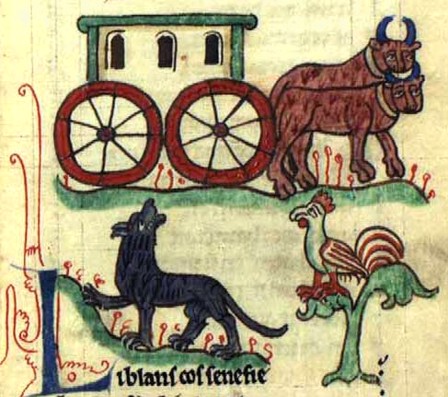 Li blans cos senefie